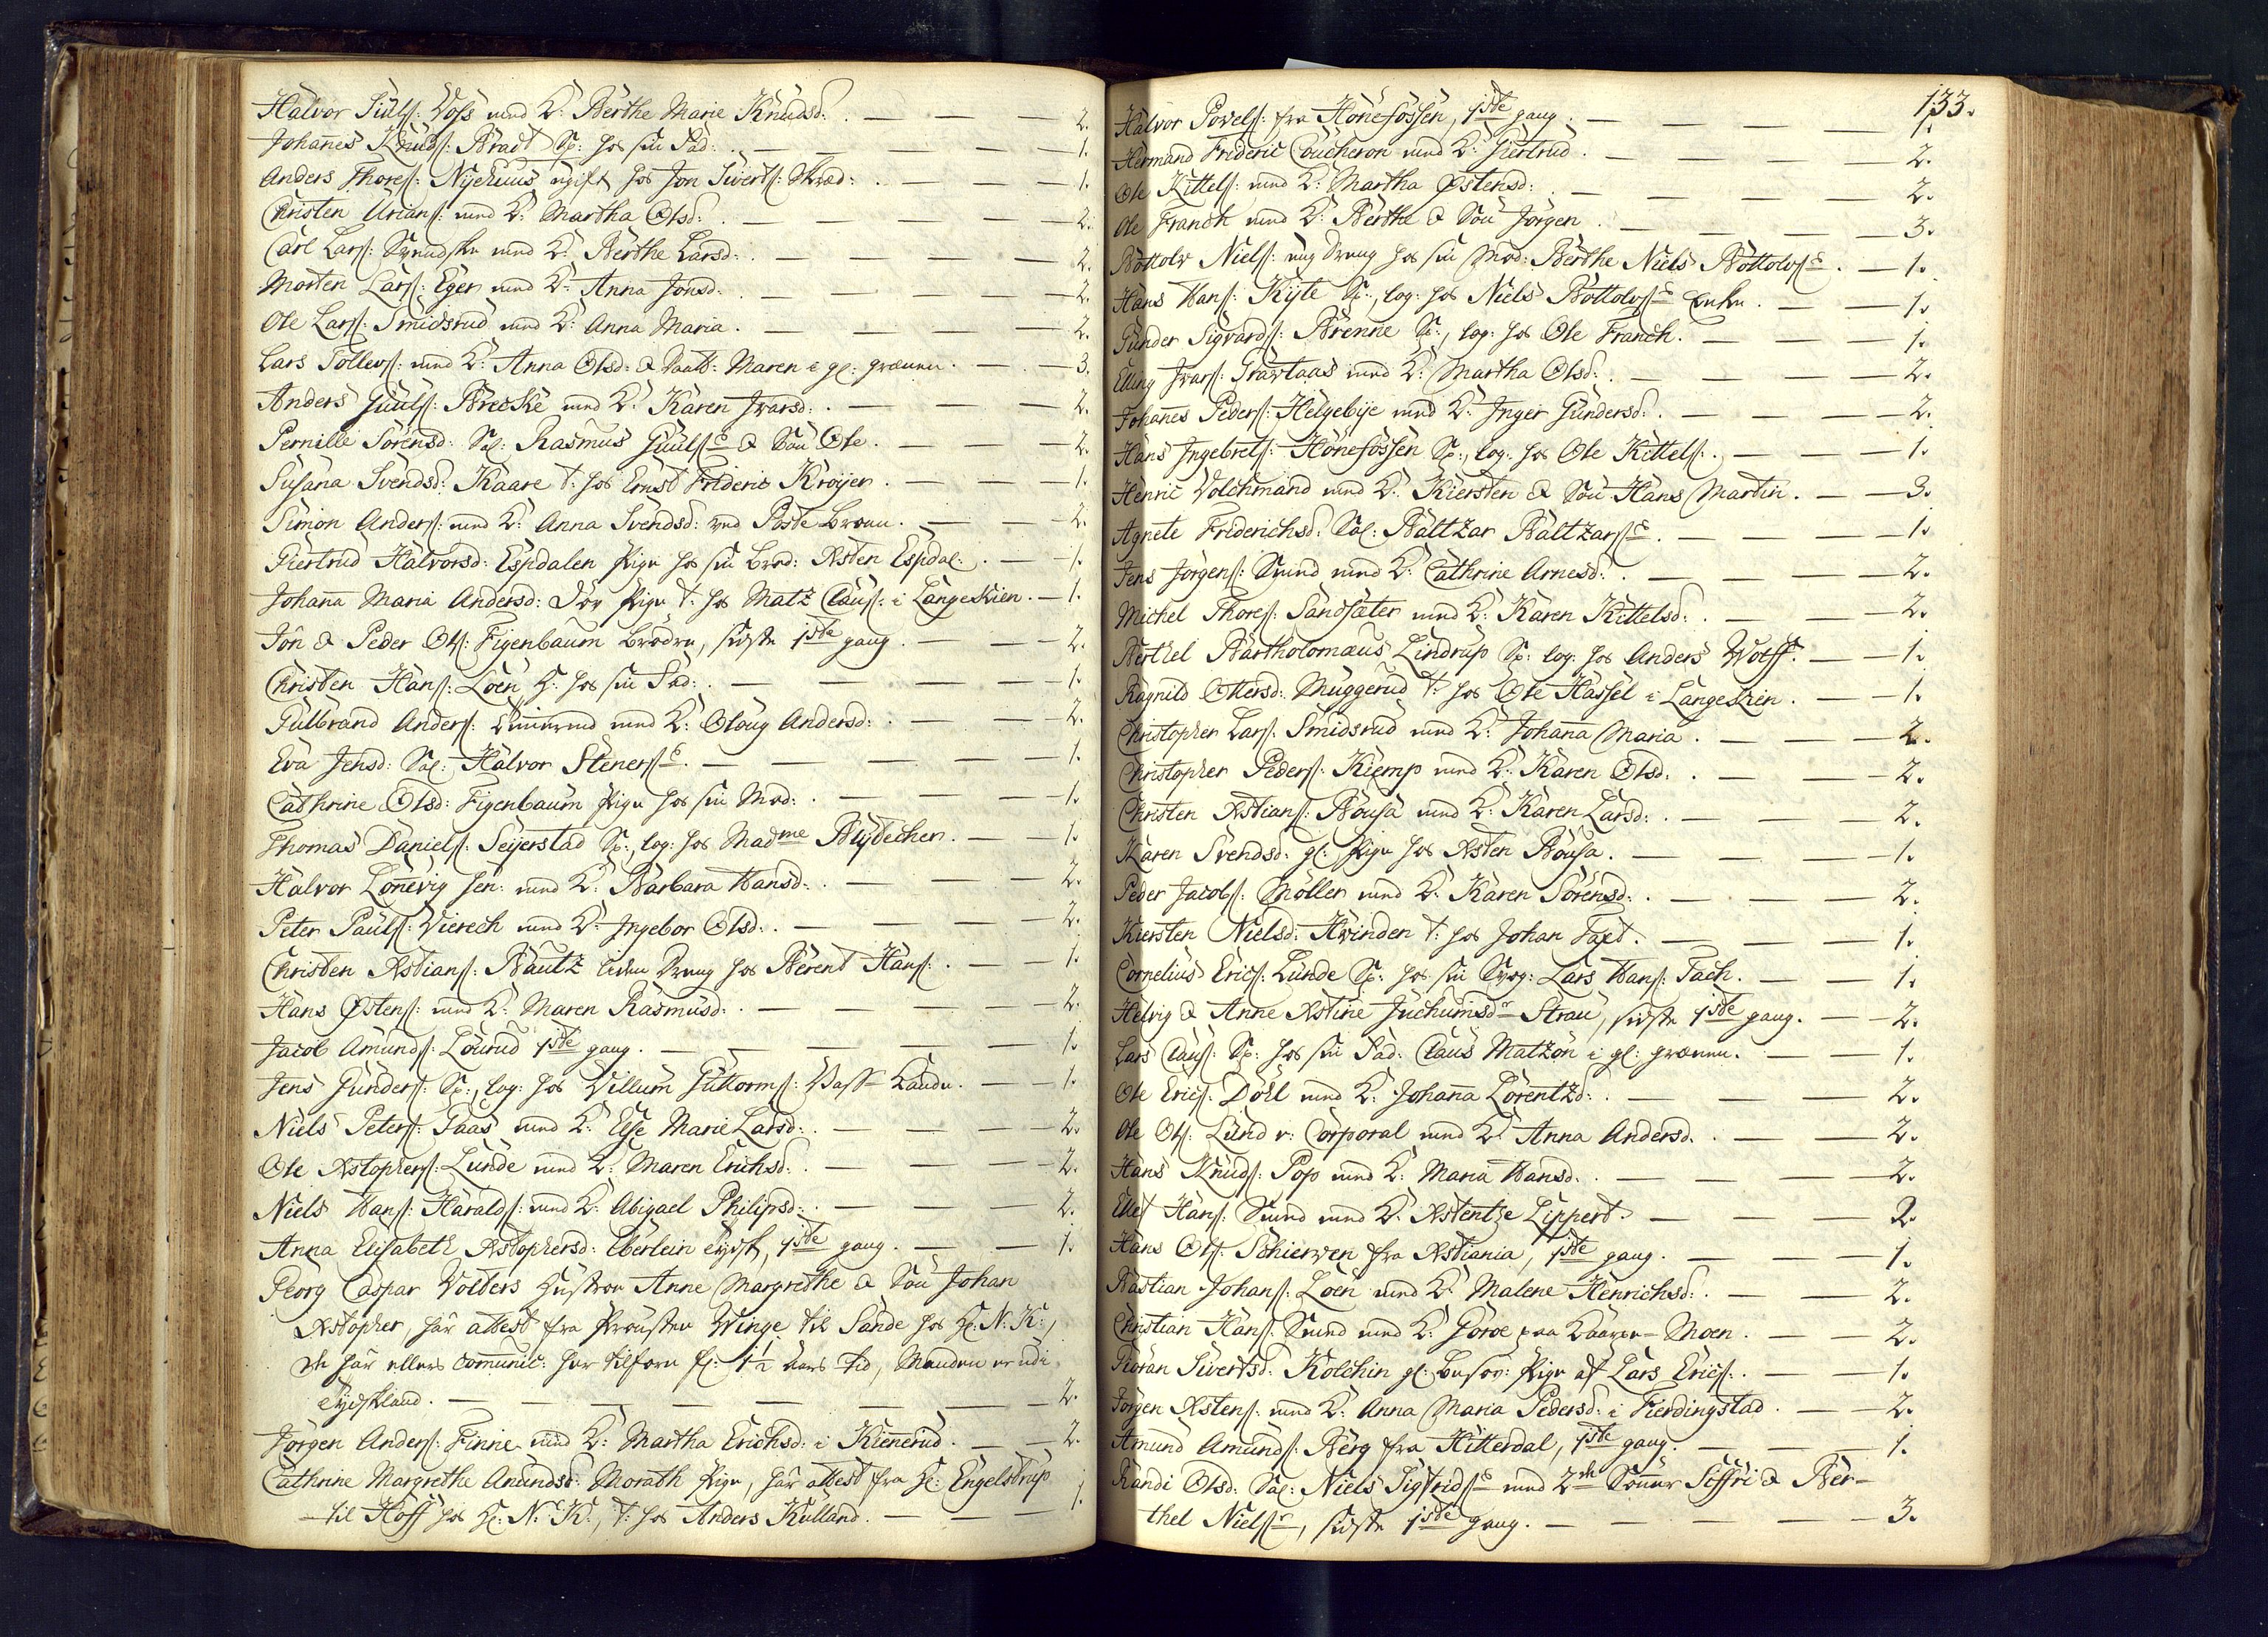 Halvor Juels: Voss med K: Berthe Marie Knudsd: 2.
Johannes Knuds: Bradt S: hos sin Fad: 1.
Anders Thores: Nyehuus ugift hos Jon Siverts: 1.
Christen Urians: med K: Martha Olsd: 2.
Carl Lars: med K: Berthe Larsd: 2.
Morten Lars: Eger med K: Anna Jonsd: 2.
Ole Lars: Smidsrud med K: Anna Maria. 2.
Lars Tollevs: med K: Anna Olsd: & Datt: Maren i gl: grænnen. 3.
Anders Guuls: Breske med K: Karen Ivarsd: 2.
Pernille Sörensd: Sal: Rasmus Guuls: & Sön Ole. 2.
Susana Svendsd: Kaare t: hos Ernst Frideric Kröyer. 1.
Simon Anders: med K: Anna Svendsd: ved Poste Brönn. 2.
Giertrud Halvorsd: Espdalen Pige hos sin Brod: Asten Espdal: 1.
Johana Maria Andersd: Döv Pige t: hos Matz Claus: i Langeskien. 1.
Jon & Peder Ols: Figenbaum brödre, sidste 1ste gang. 2.
Christen Hans: Loen, hos sin Fad: 1.
Gulbrand Anders: med K: Oloug Andersd: 2.
Eva Jensd: Sal: Halvor Steners: 1.
Cathrine Olsd: Figenbaum Pige hos sin Mod: 1.
Thomas Daniels: Seyerstad S:, log: hos Madme Blydecher. 1.
Halvor Lönevig sen: med K: Barbara Hansd: 2.
Peter Pauls: Vierech med K: Ingebor Olsd: 2.
Christen Astians: Bautz liden Dreng hos Berent Hans: 1.
Hans Østens: med K: Maren Rasmusd: 2.
Jacob Amunds: Lourud 1ste gang. 1.
Jens Gunders: S:, log: hos Villum Guttorms: 1.
Niels Peters: Paas med K: Else Marie Larsd: 2.
Ole Astophers: Lunde med K: Maren Erichsd: 2.
Niels Hans: Haralds: med K: Abigael Philipsd: 2.
Anna Elisabeth Astophersd: Eberlein Tydsk, 1ste gang. 1.
Georg Caspar Volders Hustrue Anne Margrethe & Sön Johan
Astopher, har attest fra Provsten Winge til Sande hos Hr: N: K:,
de har ellers comunic: her tilforn for 1½ aars tid, Manden er udi
Tydskland. 2.
Jörgen Anders: Finne med K: Martha Erichsd: i Kiennerud. 2.
Cathrine Margrethe Amundsd: Morath Pige, har attest fra Hr: Engelstrup
til Hoff hos Hr: N: K:, t: hos Anders Kulland. 1.
133.
Halvor Povels: fra Hönefossen, 1ste gang. 1.
Hermand Frideric Coucheron med K: Giertrud. 2.
Ole Kittels: med K: Martha Østensd: 2.
Ole Franch med K: Berthe & Sön Jörgen. 3.
Bottolv Niels: ung Dreng hos sin Mod: Berthe Niels Bottolvs: 1.
Hans Hans: Kyte S:, log: hos Niels Bottolvs: Enke. 1.
Gunder Sigvards: Brenne S:, log: hos Ole Franch. 1.
Elling Ivars: Travtaas med K: Martha Olsd: 2.
Johanes Peders: Helgebye med K: Inger Gundersd: 2.
Hans Ingebrets: Hönefossen S:, log: hos Ole Kittels: 1.
Henric Volchmand med K: Kiersten & Sön Hans Martin. 3.
Agnete Friderichsd: Sal: Baltzar Baltzars: 1.
Jens Jörgens: Smed med K: Cathrine Arnesd: 2.
Michel Thores: Sandsæter med K: Karen Kittelsd: 2.
Berthel Bartholomæus Lindrup S: log: hos Anders Wolff. 1.
Ragnild Ottersd: Muggerud t: hos Ole Hassel i Langeskien. 1.
Christopher Lars: Smidsrud med K: Johana Maria. 2.
Christopher Peders: Kiemp med K: Karen Olsd: 2.
Christen Astians: Bousa med K: Karen Larsd: 2.
Karen Svendsd: gl: Pige hos Asten Bousa. 1.
Peder Jacobs: Möller med K: Karen Sörensd: 2.
Kiersten Nielsd: Hvinden t: hos Johan Faxt. 1.
Cornelius Erics: Lunde S: hos sin Svog: Lars Hans: Fach. 1.
Helvig & Anne Astine Juchumsdr Strau, sidste 1ste gang. 2.
Lars Claus: S: hos sin Fad: Claus Matzön i gl: grænnen. 1.
Ole Erics: Döhl med K: Johana Lorentzd: 2.
Ole Ols: Lund v: Corporal med K: Anna Andersd: 2.
Hans Knuds: Pop med K: Maria Hansd: 2.
Elles Hans: Smed med K: Astentze Lippert. 2.
Hans Ols: Schierven fra Astiania, 1ste gang. 1.
Bastian Johans: Loen med K: Malene Henrichsd: 2.
Christian Hans: Smed med K: Goroe paa Moen. 2.
Gioran Sivertsd: Kolchin gl: Pige af Lars Erics: 1.
Jörgen Astens: med K: Anna Maria Pedersd: i Fierdingstad. 2.
Amund Amunds: Berg fra Hitterdal, 1ste gang. 1.
Randi Olsd: Sal: Niels Sigfrids: med 2de Sönner Siffri & Ber-
thel Niels:, sidste 1ste gang. 3.